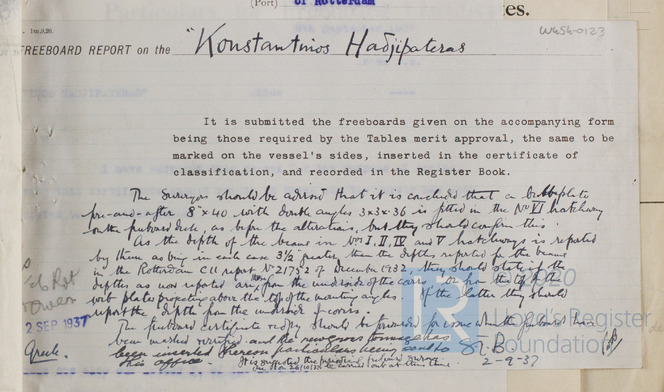 (Port) of Rotterdam
es.
W454-0123
1m,9,26.
FREEBOARD REPORT on the "Konstantinos Hadjipateras
It is submitted the freeboards given on the accompanying form
being those required by the Tables merit approval, the same to be
marked on the vessel's sides, inserted in the certificate of
classification, and recorded in the Register Book.
The Surveyors should be advised that it is concluded that a bulb plate
fore-and-after 8" x 40 with double angles 3x3x36 is fitted in the No VI hatchway
on the freeboard deck, as before the alterations, but they should confirm this.
As the depth of the beams in Nos I, II, IV and V hatchways is reported
by them as being in each case 3½" greater than the depths reported for the beams
in the Rotterdam C11 report No 21752 of December 1932 they should state if the
depths as now reported are from the underside of the or from the top of the
web plates projecting above the top of the mounting angles. If the latter they should
report the depth from the underside of covers.
The freeboard certificate should be forwarded when the freeboard has
been marked verified and the new gross tonnage has
been inserted thereon particulars being sent to
this office.
It is suggested the periodical freeboard survey
be carried out at this time
Rot
Owen
2 SEP 1937
Greek.
S.T.B.
2-9-37
© 2020
Lloyd's Register
Foundation